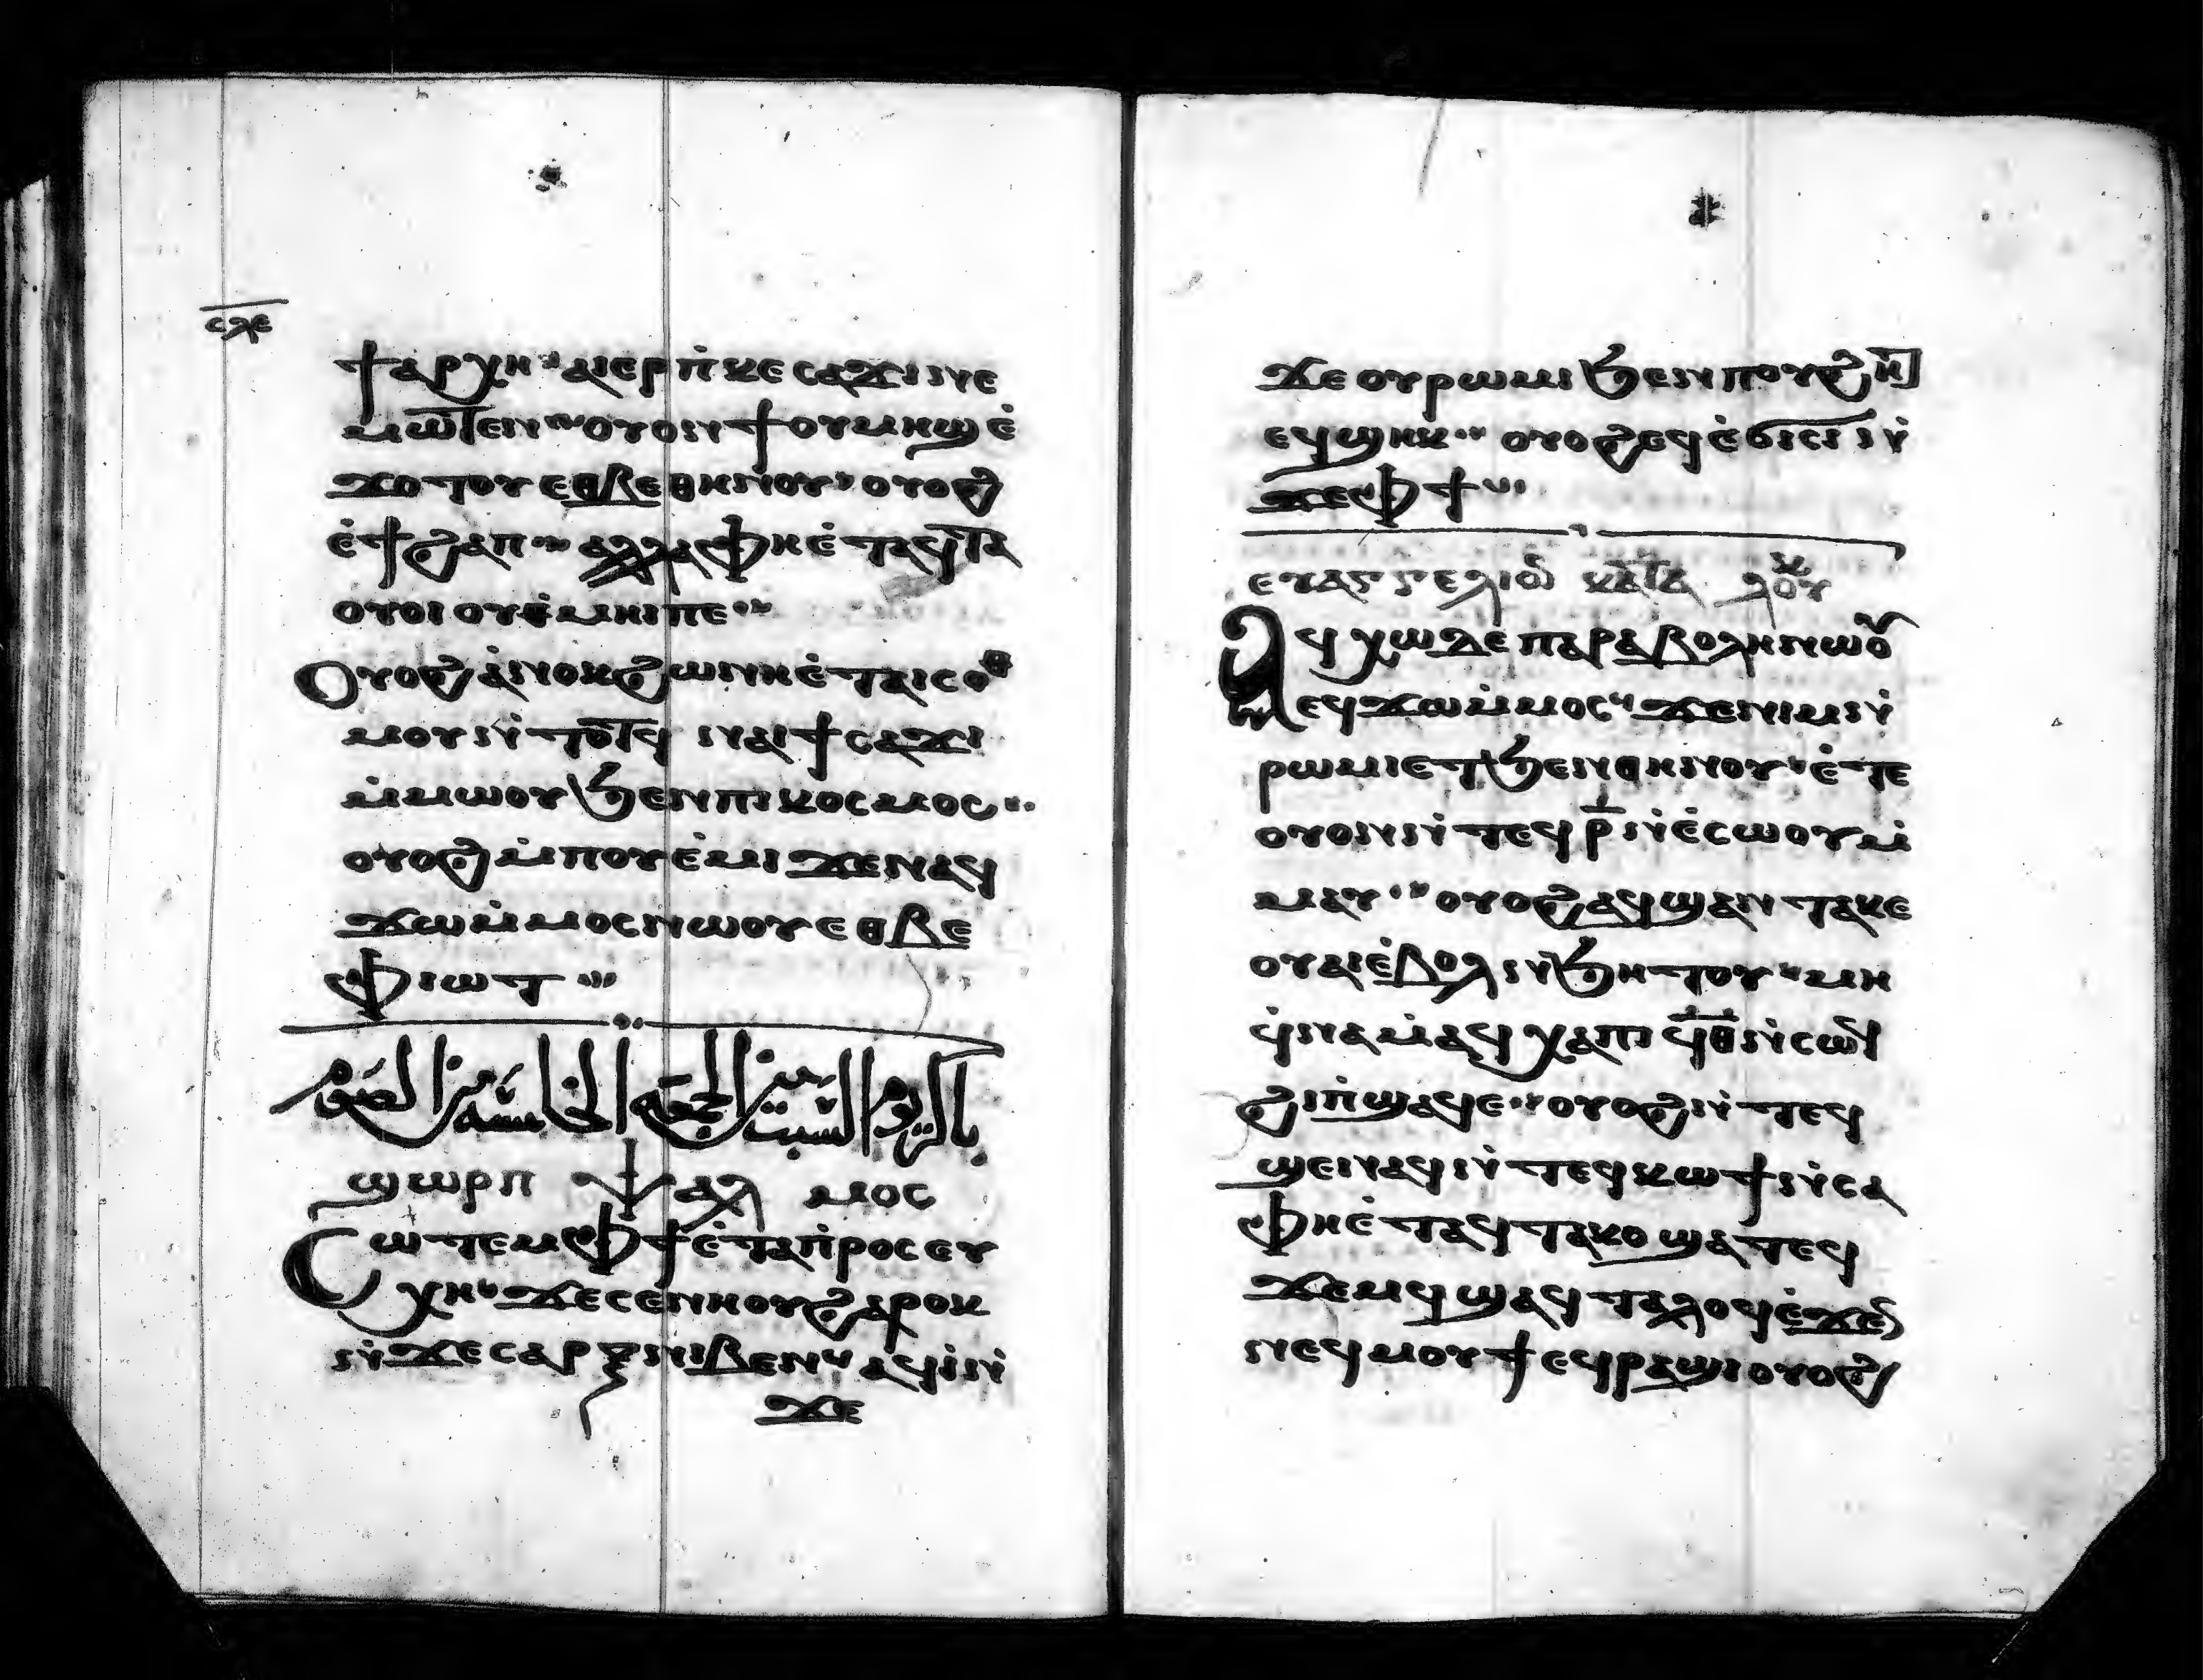 ⲥⲗⲉ
ϯⲁⲣⲭⲏ ⲁⲓⲉⲣⲡ̇ⲕⲉⲥⲁϫⲓ ⲛⲉ
ⲙⲱⲧⲉⲛ ⲟⲩⲟⲛϯ ⲟⲩⲙⲏϣ ⲉ̇
ϫⲟⲧⲟⲩ ⲉⲑⲃⲉⲑⲏⲛⲟⲩ ⲟⲩⲟϩ
ⲉ̇ϯϩⲁⲡ ⲁⲗⲗⲁ ⲫⲏⲉ̇ⲧⲁϥⲧⲁ
ⲟⲩⲟⲓ ⲟⲩⲑ̇ⲙⲏⲓ ⲡⲉ
Ⲟⲩⲟϩ ⲁ̇ⲛⲟⲕ ϩⲱ ⲛⲏⲉ̇ⲧⲁⲓⲥⲟⲑ
ⲙⲟⲩ ⲛ̇ⲧⲟⲧϥ ⲛⲁⲓ ϯⲥⲁϫⲓ
ⲙ̇ⲙⲱⲟⲩ ϧⲉⲛ ⲡⲓⲕⲟⲥⲙⲟⲥ
ⲟⲩⲟϩ ⲙ̇ⲡⲟⲩⲉ̇ⲙⲓ ϫⲉ ⲛⲁϥ
ϫⲱ ⲙ̇ⲙⲟⲥ ⲛⲱⲟⲩ ⲉⲑⲃⲉ
ⲫⲓⲱⲧ
باكر يوم السبت من الجمعه الخامسه من الصوم
ϣⲱⲣⲡ ⲯⲁⲗⲙⲟⲥ
Ⲥⲱⲧⲉⲙ ⲫϯ ⲉ̇ⲧⲁⲡ̇ⲣⲟⲥⲉⲩ
ⲭⲏ ϫⲉ ⲥⲉⲛⲏⲟⲩ ϩⲁⲣⲟⲕ
ⲛ̇ϫⲉ ⲥⲁⲣⲝ ⲛⲓⲃⲉⲛ ⲁϥⲓ̇ ⲛ̇
ϫⲉ
ϫⲉ ⲟⲩⲣⲱⲙⲓ ϧⲉⲛ ⲡⲟⲩϩⲏⲧ
ⲉϥϣⲏⲕ ⲟⲩⲟϩ ⲉϥⲉ̇ϭⲓⲥⲓ ⲛ̇
ϫⲉ ⲫϯ
ⲉⲩⲁⲅⲅⲉⲗⲓⲟⲛ ⲕⲁⲧⲁ ⲗⲟⲩⲕ
Ⲁϥϫⲱ ⲇⲉ ⲡⲁⲣⲁⲃⲟⲗⲏ ⲛⲱⲟⲩ
ⲉϥϫⲱ ⲙ̇ⲙⲟⲥ ϫⲉ ⲛⲓⲙ ⲛ̇
ⲣⲱⲙⲓ ⲉⲧϧⲉⲛ ⲑⲏⲛⲟⲩ ⲉ̇ⲧⲉ
ⲟⲩⲟⲛ ⲛ̇ⲧⲉϥ ⲣ̅ ⲛ̇ⲉ̇ⲥⲱⲟⲩ ⲙ̇
ⲙⲁⲩ ⲟⲩⲟϩ ⲁϥϣⲁⲛⲧⲁⲕⲉ
ⲟⲩⲁⲓ ⲉ̇ⲃⲟⲗ ⲛ̇ϧⲏⲧⲟⲩ ⲙⲏ
ϥ̇ⲛⲁⲙ̇ⲁϥ ⲭⲁ ⲡⲓ ϥ̅ⲑ̅ ⲛ̇ⲥⲱϥ
ϩⲓ ⲡ̇ϣⲁϥⲉ ⲟⲩⲟϩ ⲛ̇ⲧⲉϥ
ϣⲉⲛⲁϥ ⲛ̇ⲧⲉϥⲕⲱϯ ⲛ̇ⲥⲁ
ⲫⲏⲉ̇ⲧⲁϥⲧⲁⲕⲟ ϣⲁⲧⲉϥ
ϫⲉⲙϥ ϣⲁϥⲧⲁⲗⲟϥ ⲉ̇ϫⲉⲛ
ⲛⲉϥⲙⲟⲩϯ ⲉϥⲣⲁϣⲓ ⲟⲩⲟϩ